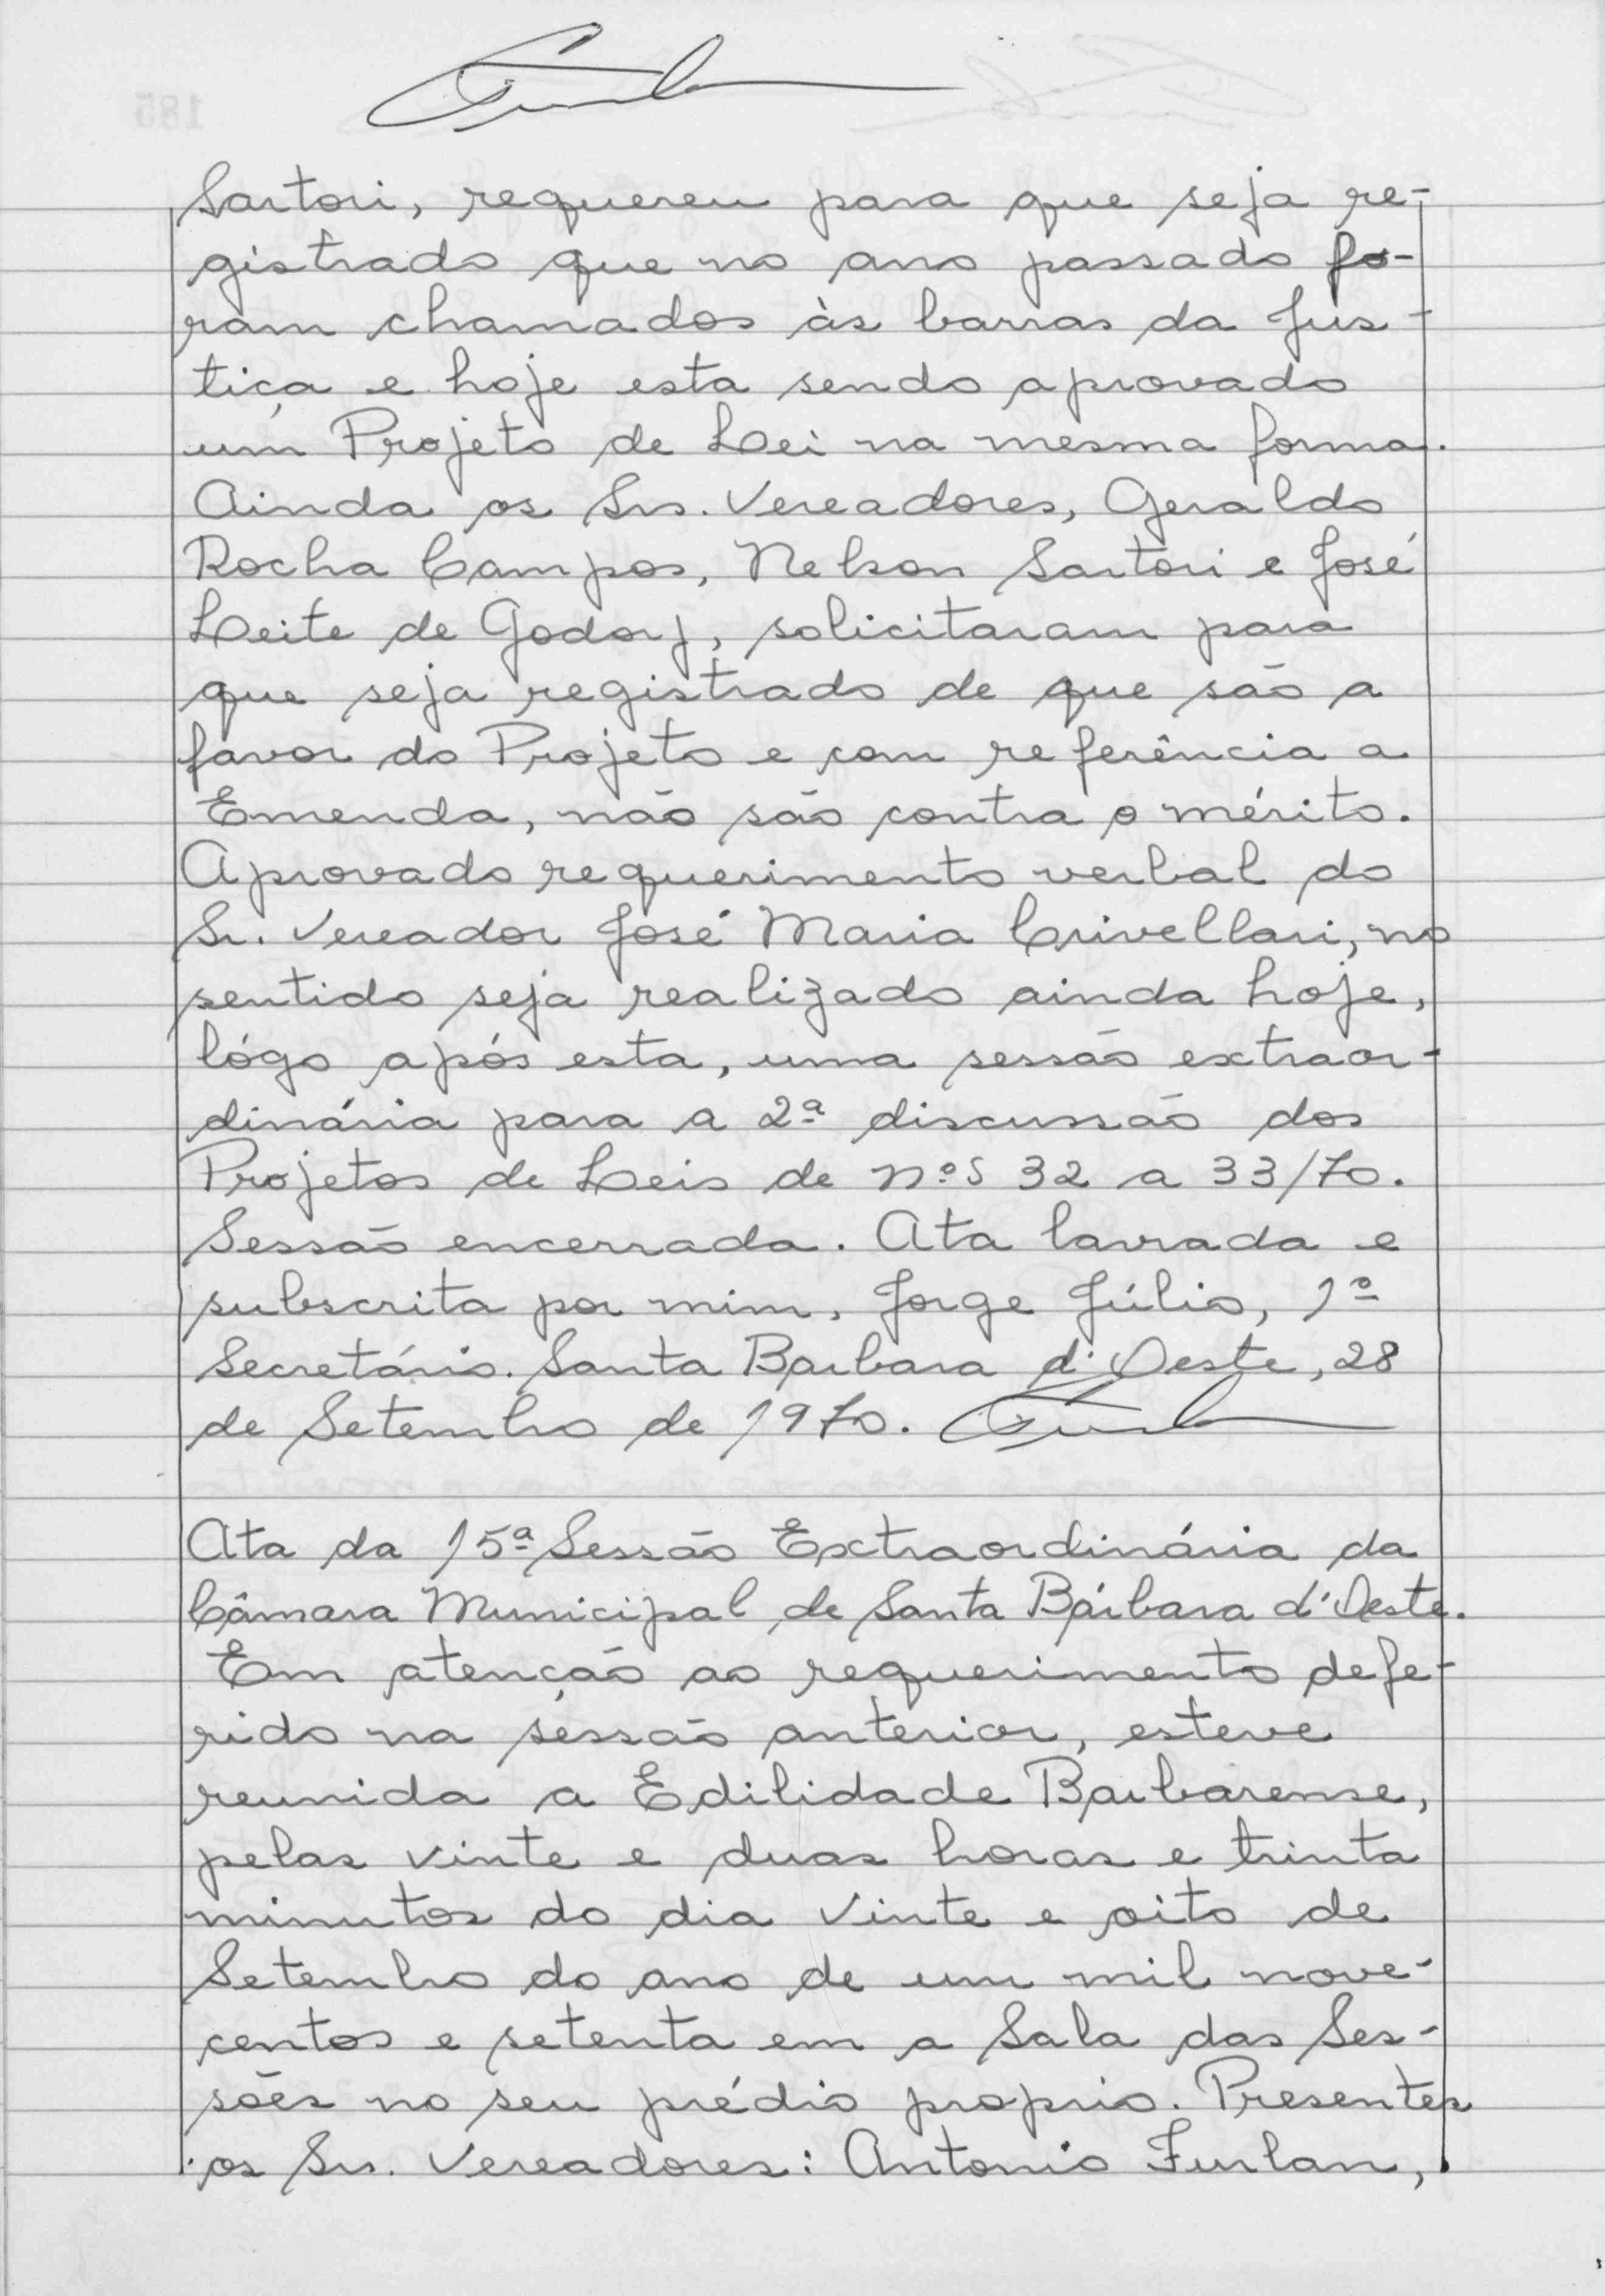 Sartori, requereu para que seja re-
gistrado que no ano passado fo-
ram chamados às barras da Jus-
tiça e hoje esta sendo aprovado
um Projeto de Lei na mesma forma.
Ainda os Srs. Vereadores, Geraldo
Rocha Campos, Nelson Sartori e José
Leite de Godoy, solicitaram para
que seja registrado de que são a
favor do Projeto e com referência a
Emenda, não são contra o mérito.
Aprovado requerimento verbal do
Sr. Vereador José Maria Crivellari, no
sentido seja realizado ainda hoje,
lógo após esta, uma sessão extraor-
dinária para a 2ª discussão dos
Projetos de Leis de nºs 32 a 33/70.
Sessão encerrada. Ata lavrada e
subscrita por mim, Jorge Júlio, 1º
Secretário. Santa Barbara d'Oeste, 28
de Setembro de 1970.
Ata da 15ª Sessão Extraordinária da
Câmara Municipal de Santa Bárbara d'Oeste.
Em atenção ao requerimento defe-
rido na sessão anterior, esteve
reunida a Edilidade Barbarense,
pelas vinte e duas horas e trinta
minutos do dia vinte e oito de
Setembro do ano de um mil nove-
centos e setenta em a Sala das Ses-
sões no seu prédio proprio. Presentes
os Srs. Vereadores: Antonio Furlan,